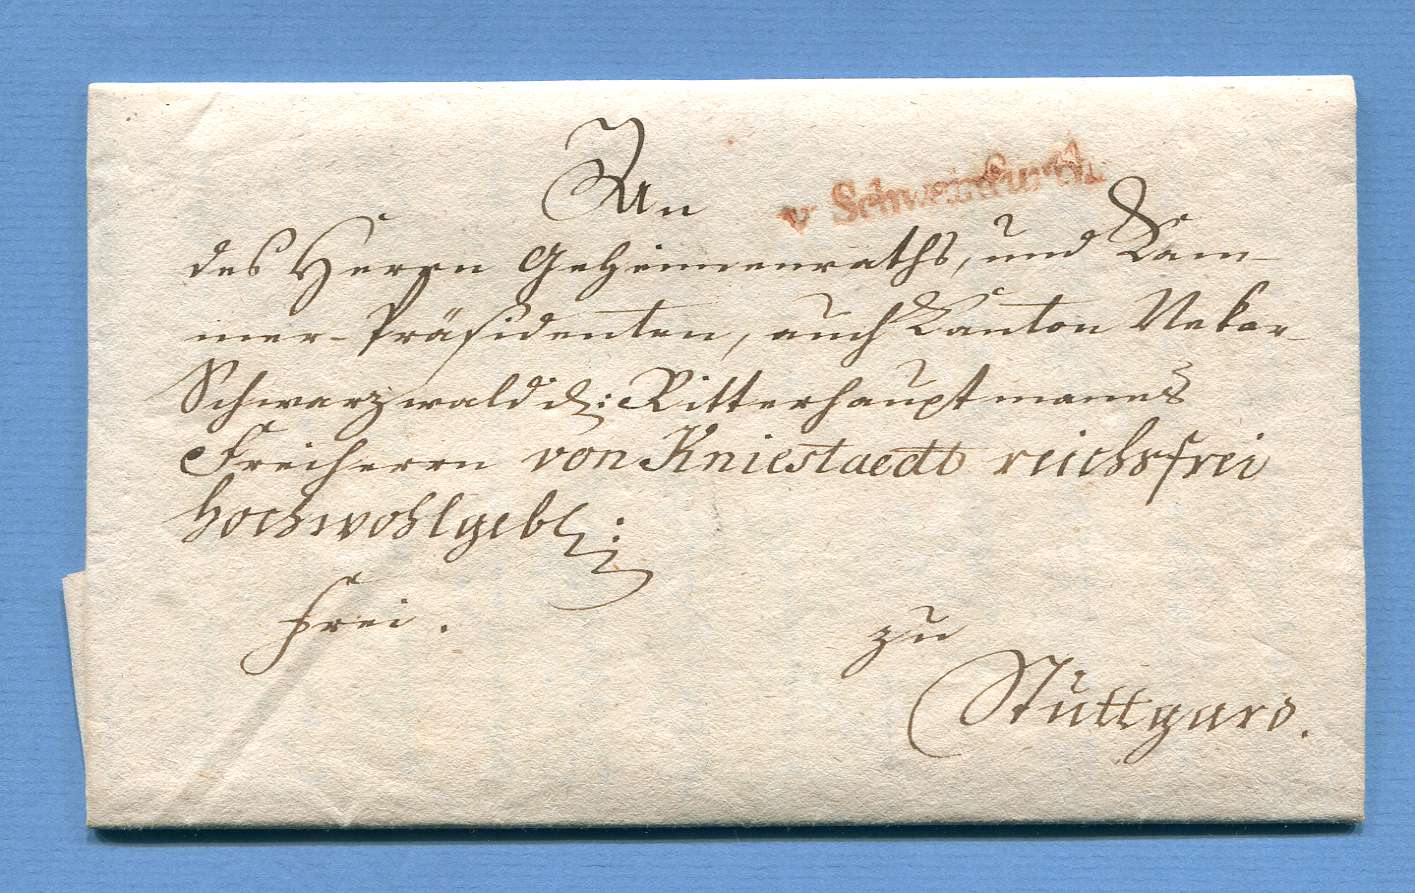 v Schweinfurth
An
des Herrn Geheimenraths, und Kam-
mer-Präsidenten, auch Canton Nekar-
Schwarzwäld:
Ritterhauptmanns
Freiherrn von Kniestaedt reichsfrei
hochwohlgeb:
frei.
zu
Stuttgard.